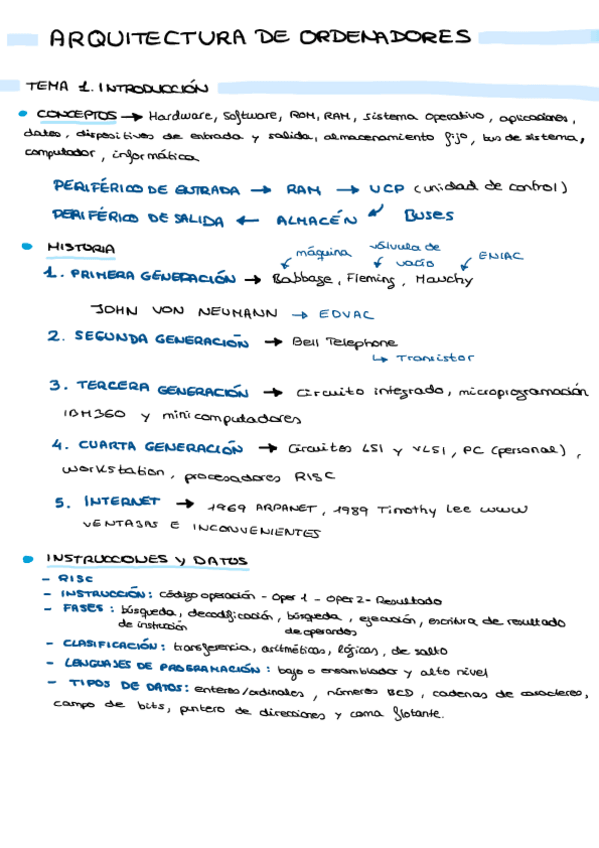 ARQUITECTURA DE ORDENADORES
TEMA 1. INTRODUCCIÓN
CONCEPTOS → Hardware, Software, ROM, RAM, sistema operativo, aplicaciones,
datos, dispositivos de entrada y salida, almacenamiento fijo, bus de sistema,
computador, informática
PERIFÉRICO DE ENTRADA → RAM → UCP (unidad de control)
PERIFÉRICO DE SALIDA ← ALMACÉN ↙ Buses
HISTORIA
máquina válvula de vacío ENIAC
1. PRIMERA GENERACIÓN → Babbage, Fleming, Mauchy
JOHN VON NEUMANN → EDVAC
2. SEGUNDA GENERACIÓN → Bell Telephone
↳ Transistor
3. TERCERA GENERACIÓN → Circuito integrado, microprogramación
IBM360 y minicomputadores
4. CUARTA GENERACIÓN → Circuitos LSI y VLSI, PC (personal),
workstation, procesadores RISC
5. INTERNET → 1969 ARPANET, 1989 Timothy Lee www
VENTAJAS E INCONVENIENTES
INSTRUCCIONES y DATOS
- RISC
- INSTRUCCIÓN: código operación - Oper 1 - Oper 2 - Resultado
- FASES: búsqueda, decodificación, búsqueda, ejecución, escritura de resultado
de instrucción de operandos
- CLASIFICACIÓN: transferencia, aritméticas, lógicas, de salto
- LENGUAJES DE PROGRAMACIÓN: bajo o ensamblador y alto nivel
- TIPOS DE DATOS: enteros/ordinales, números BCD, cadenas de caracteres,
campo de bits, puntero de direcciones y coma flotante.